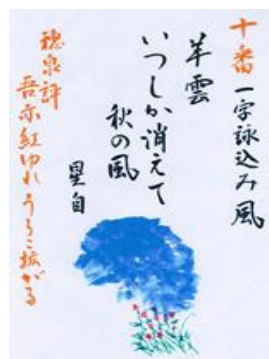 十番 一字詠込み 風
羊雲
いつしか消えて
秋の風
星自
穂泉評
吾亦紅ゆれうろこ拡がる